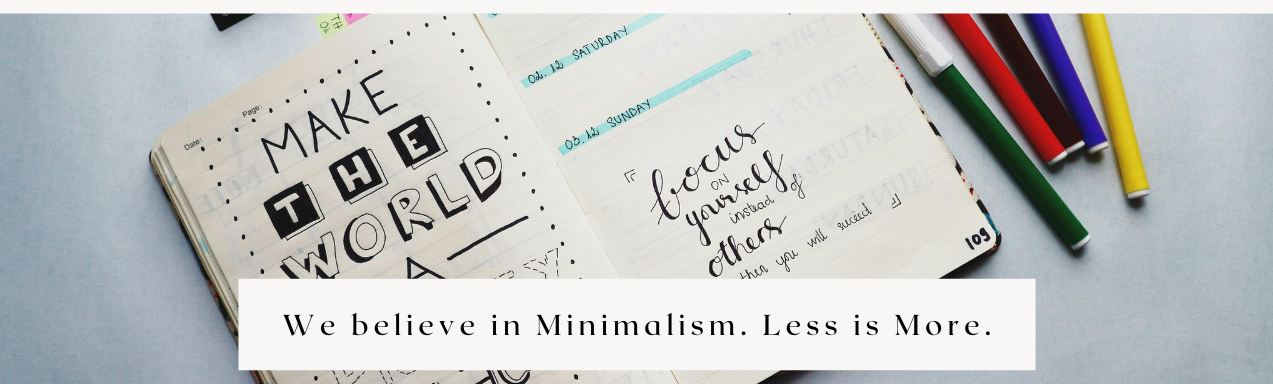 Date:
Page:
MAKE
THE
WORLD
A
02. 12 SATURDAY
03. 12 SUNDAY
focus
ON
yourself
instead of
others
then you will succeed
109
We believe in Minimalism. Less is More.